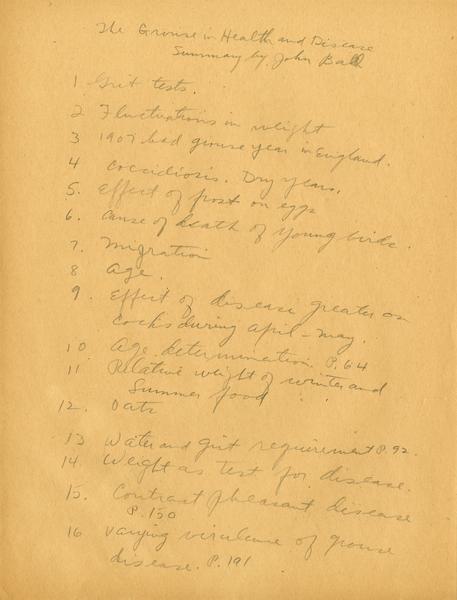 The Grouse in Health and Disease
Summary by John Ball
1 Grit tests.
2 Fluctuations in weight
3 1907 bad grouse year in England.
4 Coccidiosis. Dry years.
5. Effect of frost on eggs
6. Cause of death of young birds.
7. Migration
8 Age.
9. Effect of disease greater on
cocks during April-May.
10 Age determination P. 64
11. Relative weight of winter and
Summer food
12. Oats
13 Water and grit requirement P. 92.
14. Weight as test for disease.
15. Contrast pheasant disease
P. 150
16 Varying virulence of grouse
disease. P. 191